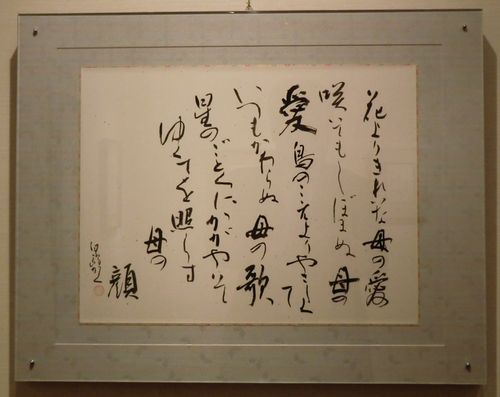 花よりきれいな母の愛
咲いてもしぼまぬ母の
愛鳥のこえよりやさしく
いつもかわらぬ母の歌
星のごとくにかがやいて
ゆくてを照らす
母の
顔